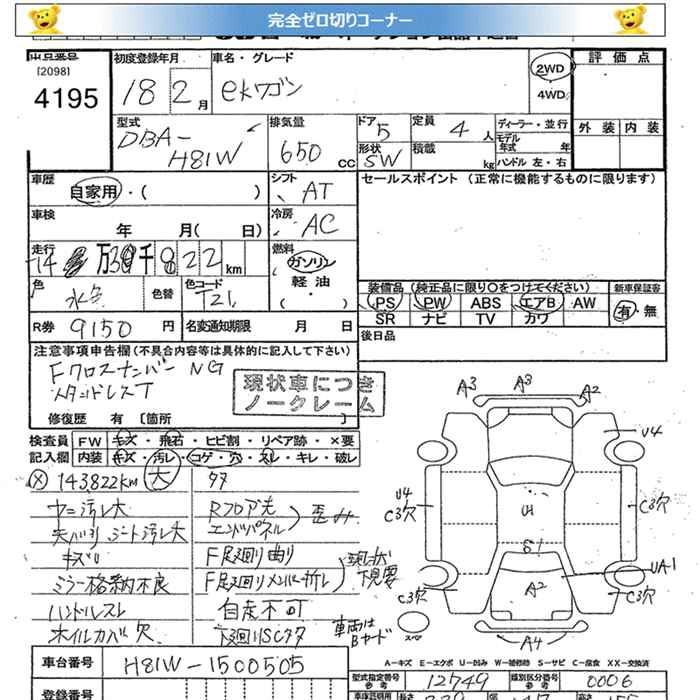 完全ゼロ切りコーナー
出品番号 初度登録年月 車名・グレード 評価点
[2098]
4195 18 2月 ekワゴン 2WD 4WD
外装 内装
型式 DBA-H81W 排気量 650 CC ドア 5 定員 4人 ディーラー・並行
形状 SW 積載 kg モデル年式 年
ハンドル 左・右
車歴 自家用・( ) シフト AT セールスポイント (正常に機能するものに限ります)
車検 年 月( 日) 冷房 AC
走行 14 万 3 千 822 km 燃料 ガソリン 軽油 ・( )
色 水色 色替 色コード T21
装備品 (純正品に限り○をつけてください) 新車保証書
PS PW ABS エアB AW 有・無
SR ナビ TV カワ
R券 9150 円 名変通知期限 月 日 後日品
注意事項申告欄 (不具合内容等は具体的に記入して下さい)
Fクロスナンバー NG
スタンドレスT
現状車につき
ノークレーム
修復歴 有 [箇所 ]
検査員 FW キズ・飛石・ヒビ割・リペア跡・×要
記入欄 内装 キズ・汚レ・コゲ・穴・スレ・キレ・破レ
143822km 大
ヤニ汚レ大 Rフロア先
天バリ シート汚レ大 エンドパネル 歪み
キズ F足廻り曲り
ミラー格納不良 F足廻りメンバー折レ 現状下見要
ハンドルスレ 自走不可
ホイルカバー欠 下廻りSCタタ
車両はBヤード
A3 A3 A2
U4
U4
C3欠 C3欠
U1
S1
A2 UA1
C3欠 C3欠
スペア
A4
A-キズ E-エクボ U-凹み W-補修跡 S-サビ C-腐食 XX-交換済
車台番号 H81W-1500505
型式指定番号 参考 12749 類別区分番号 参考 0006
登録番号